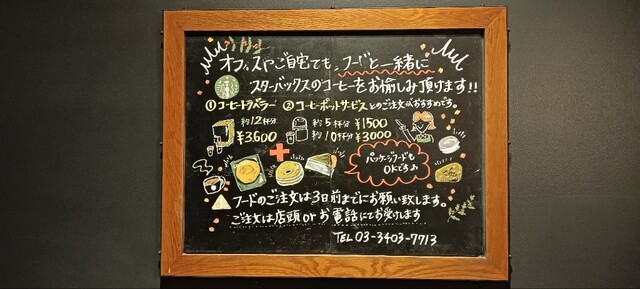 オフィスやご自宅でも、フードと一緒に
スターバックスのコーヒーをお愉しみ頂けます!!
①コーヒートラベラー ②コーヒーポットサービスとのご注文がおすすめです。
約12杯分 ¥3,600
約5杯分 ¥1500
約10杯分 ¥3000
+
パッケージフードも
OKです♪
フードのご注文は3日前までにお願い致します。
ご注文は店頭orお電話にてお受けします
TEL 03-3403-7713